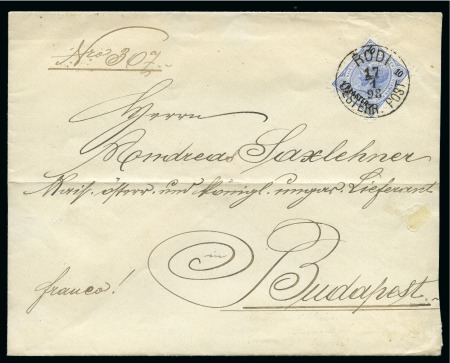 Nro 307
RODI
17
1
93
OESTERR. POST
10
Herrn
Andreas Saxlehner
Kais. österr. und königl. ungar. Lieferant
in
Budapest.
franco!